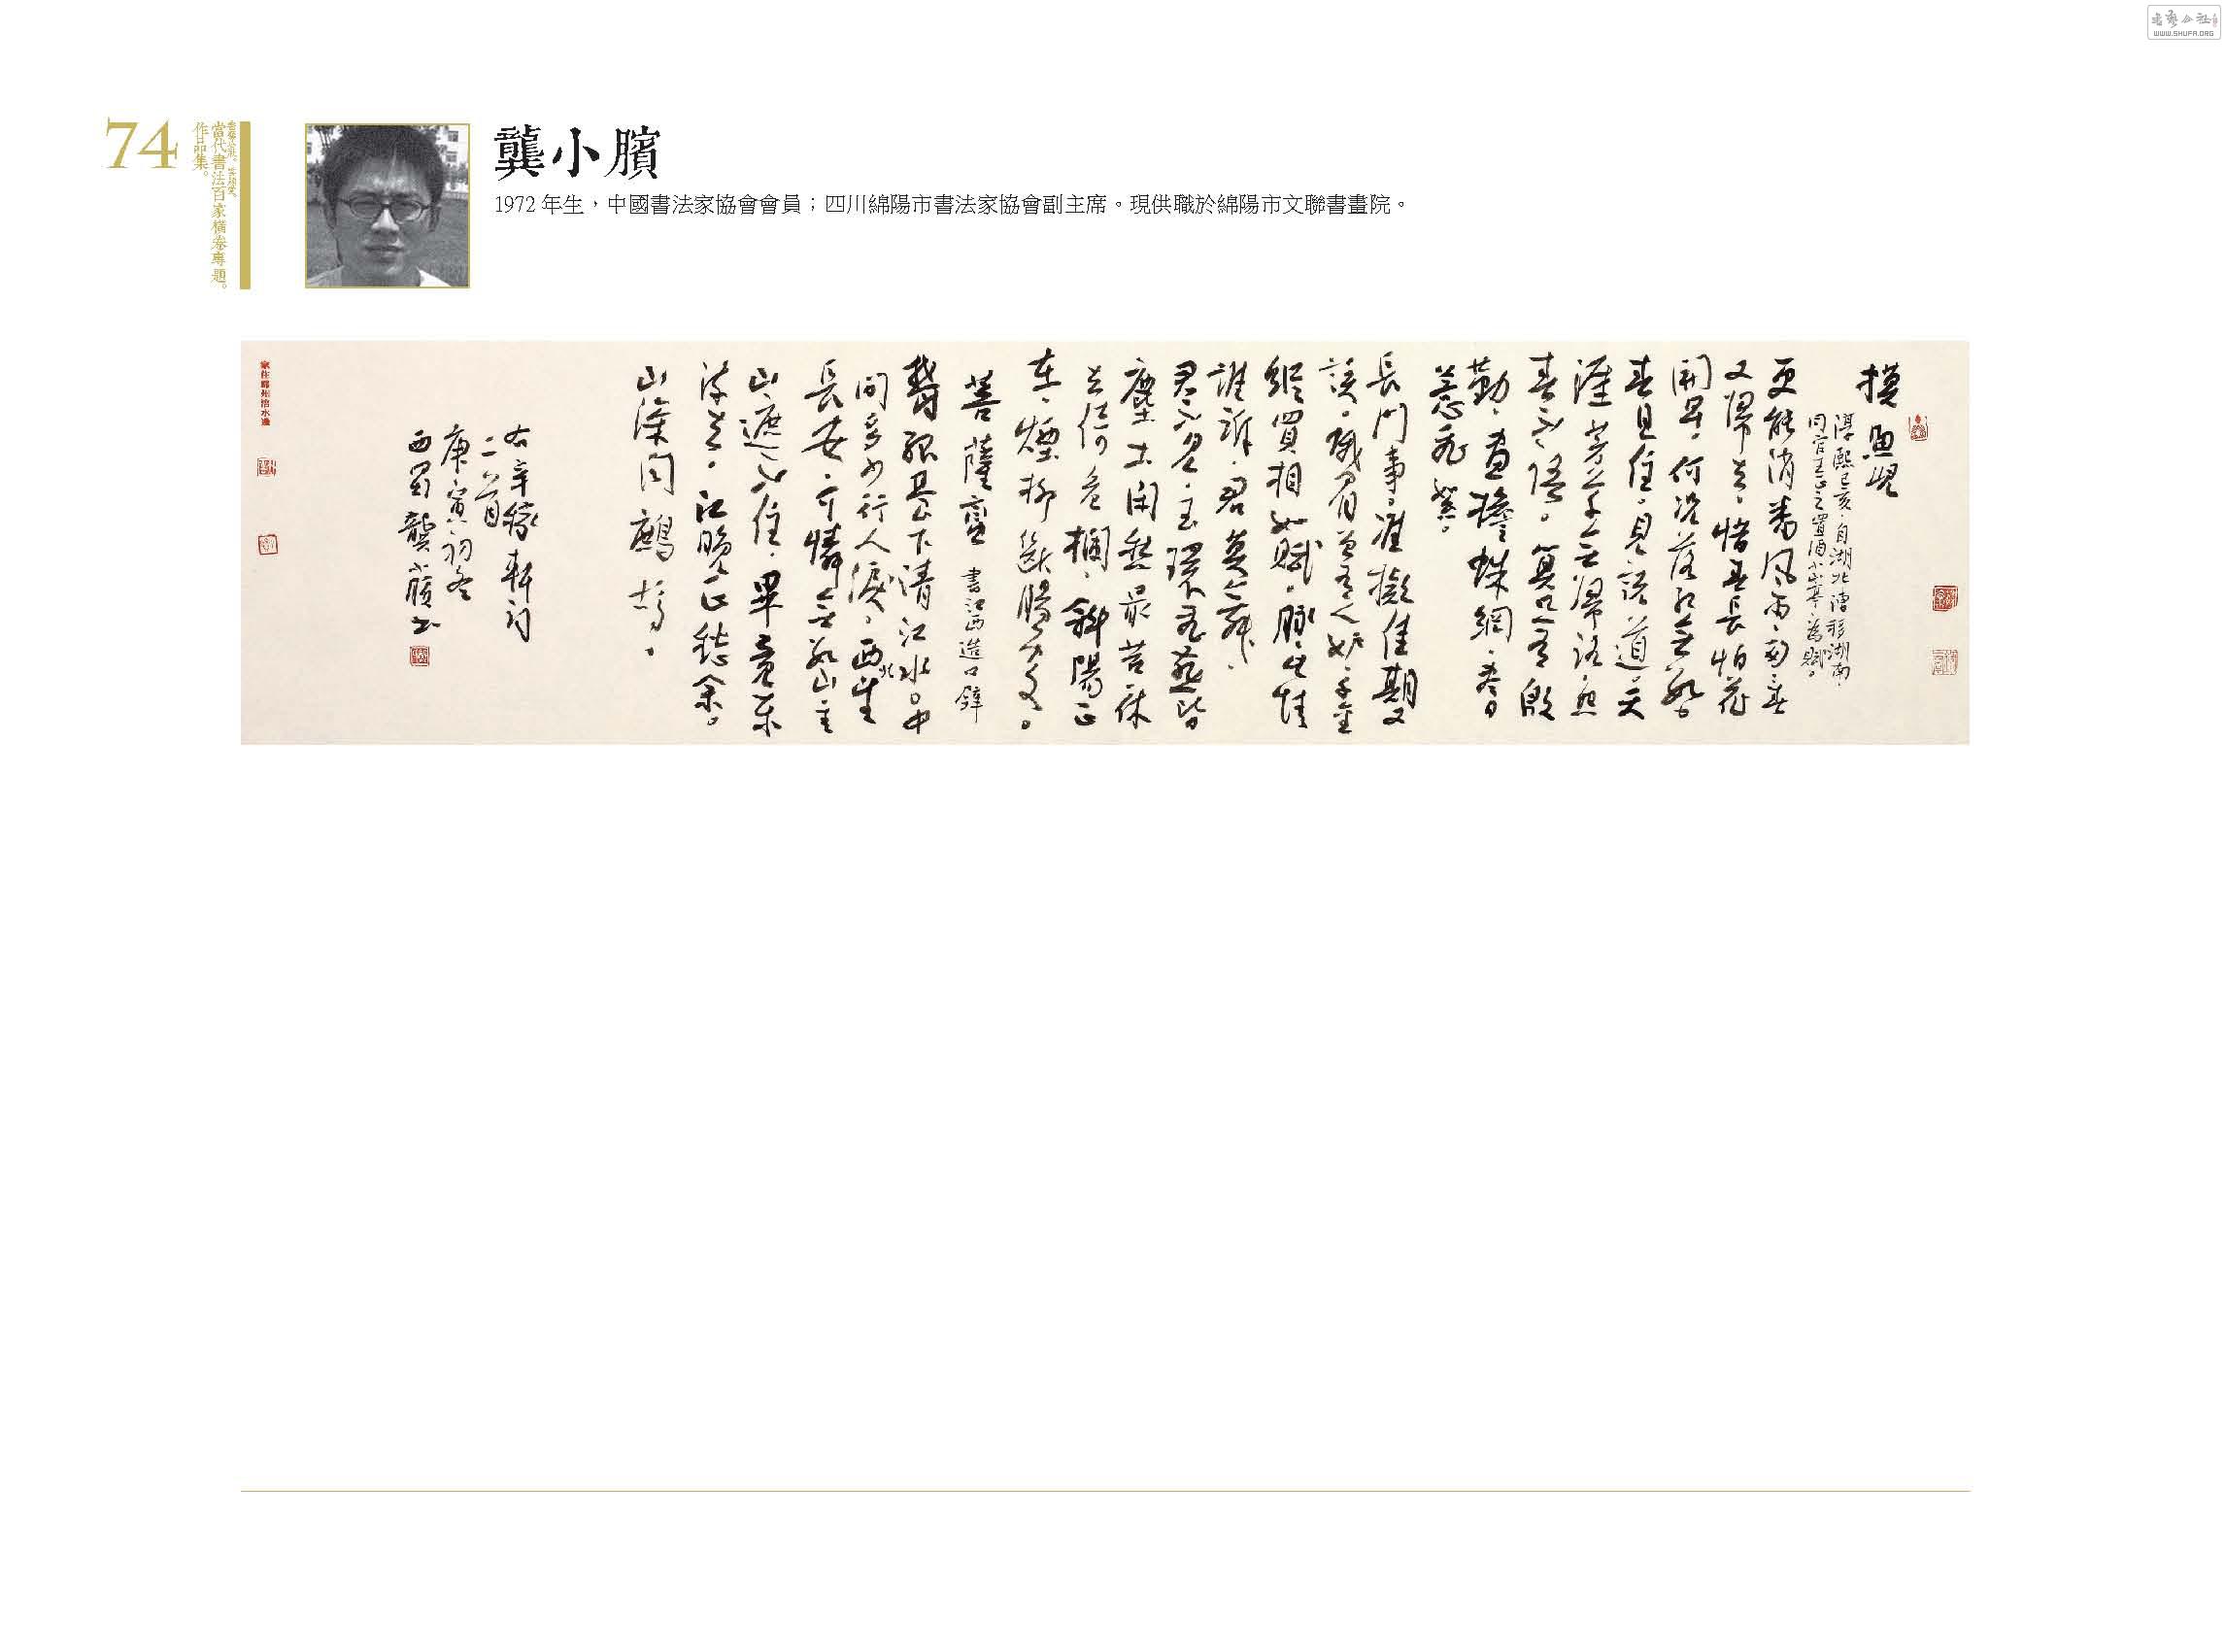 WWW.SHUFA.ORG
74
當代書法百家橫卷專題。
作品集。
龔小臏
1972 年生，中國書法家協會會員；四川綿陽市書法家協會副主席。現供職於綿陽市文聯書畫院。
摸魚兒
淳熙己亥自湖北漕移湖南
同官王正之置酒小山亭為賦
更能消番風雨匆春
又歸去惜春長怕花
開早何況落紅無數
春且住見說道天
涯芳草無歸路怨
春不語算只有殷
勤畫簷蛛網盡日
惹飛絮
長門事準擬佳期又
誤蛾眉曾有人妒千金
縱買相如賦脉此情
誰訴君莫舞
君不見玉環飛燕皆
塵土閑愁最苦休
去倚危欄斜陽正
在煙柳斷腸處
菩薩蠻 書江西造口壁
鬱孤臺下清江水中
間多少行人淚西北望
長安可憐無數山青
山遮不住畢竟東
流去江晚正愁余
山深聞鷓鴣
右辛稼軒詞
二首
庚寅初冬
西蜀龔小臏書
家住綿州涪水邊